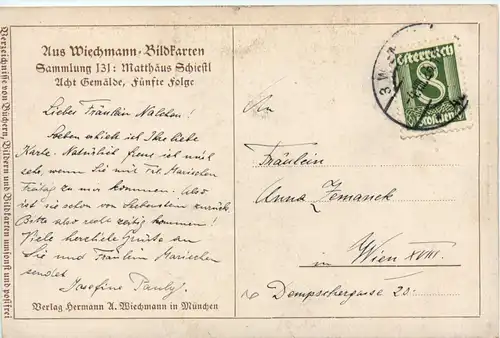 Verzeichnisse von Büchern, Bildern und Bildkarten umsonst und postfrei
Aus Wiechmann-Bildkarten
Sammlung 131: Matthäus Schiestl
Acht Gemälde, Fünfte Folge
Liebes Fräulein
Soeben erhielt ich Ihre liebe
Karte. Natürlich freue ich mich
sehr, wenn Sie mit Frl. Mariechen
Freitag zu mir kommen. Also
ist sie schon von zurück.
Bitte also recht zeitig kommen!
Viele herzliche Grüße an
Sie und Fräulein Mariechen
sendet
Josefine Pauly.
Verlag Hermann A. Wiechmann in München
Österreich
8
Groschen
An
Fräulein
Anna Zemanek
in Wien XVIII.
Dempschergasse 23.